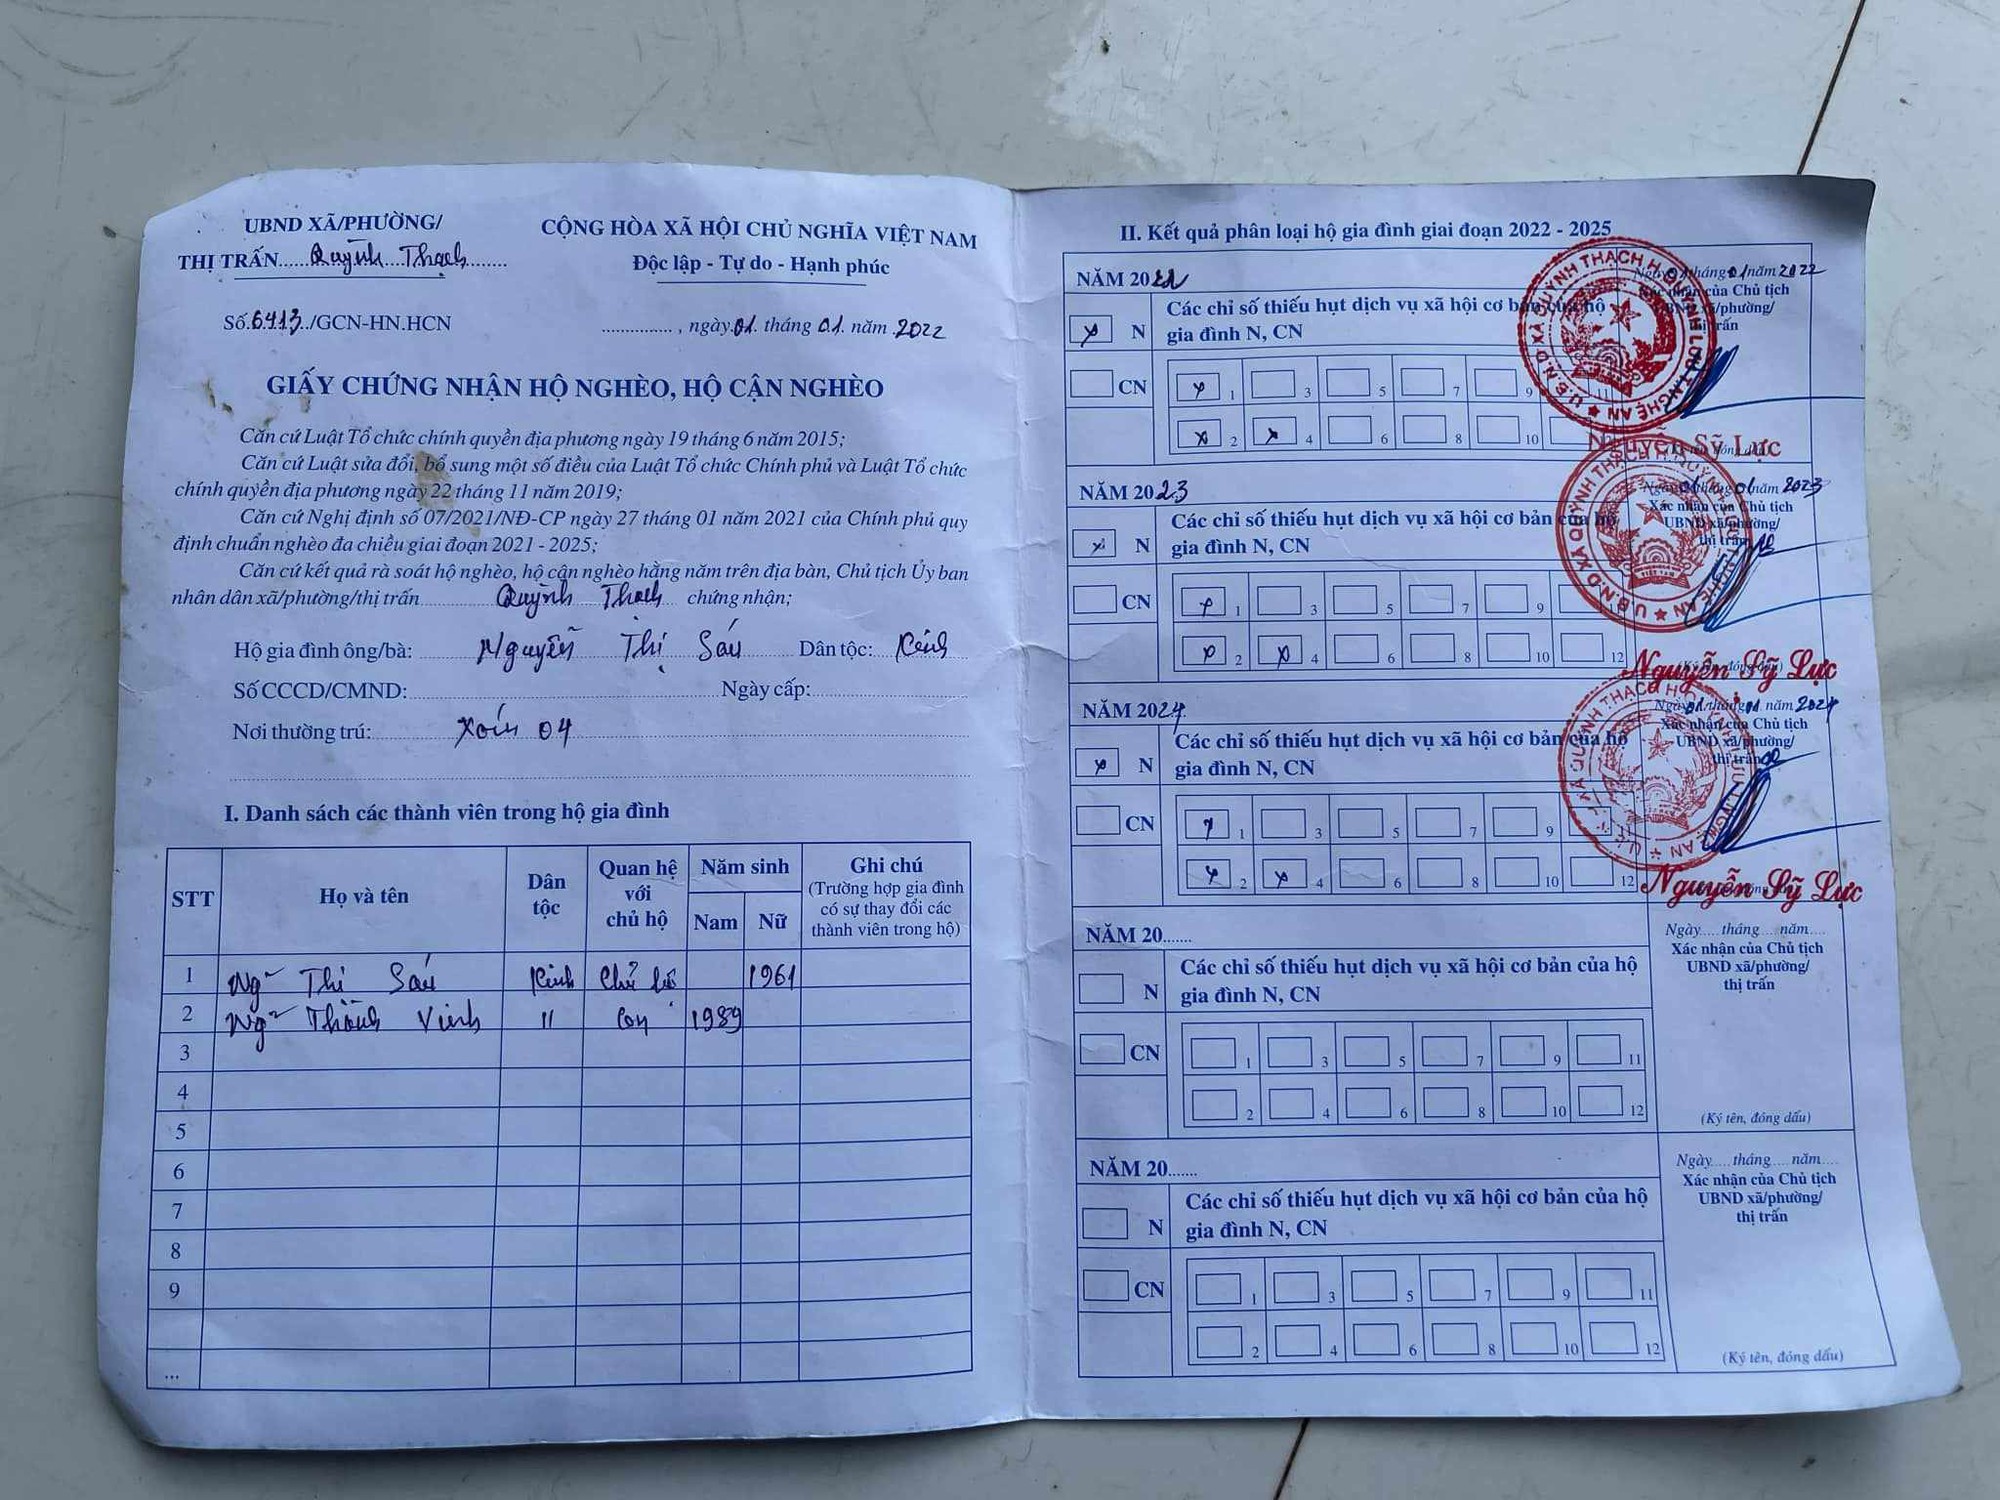 UBND XÃ/PHƯỜNG/
THỊ TRẤN Quỳnh Thạch
CỘNG HÒA XÃ HỘI CHỦ NGHĨA VIỆT NAM
Độc lập - Tự do - Hạnh phúc
Số.6413./GCN-HN.HCN
.............. , ngày 01. tháng 01. năm 2022
GIẤY CHỨNG NHẬN HỘ NGHÈO, HỘ CẬN NGHÈO
Căn cứ Luật Tổ chức chính quyền địa phương ngày 19 tháng 6 năm 2015;
Căn cứ Luật sửa đổi, bổ sung một số điều của Luật Tổ chức Chính phủ và Luật Tổ chức
chính quyền địa phương ngày 22 tháng 11 năm 2019;
Căn cứ Nghị định số 07/2021/NĐ-CP ngày 27 tháng 01 năm 2021 của Chính phủ quy
định chuẩn nghèo đa chiều giai đoạn 2021 - 2025;
Căn cứ kết quả rà soát hộ nghèo, hộ cận nghèo hằng năm trên địa bàn, Chủ tịch Ủy ban
nhân dân xã/phường/thị trấn Quỳnh Thạch chứng nhận;
Hộ gia đình ông/bà: Nguyễn Thị Sáu Dân tộc: Kinh
Số CCCD/CMND: Ngày cấp:
Nơi thường trú: Xóm 04
I. Danh sách các thành viên trong hộ gia đình
STT Họ và tên Dân tộc Quan hệ với chủ hộ Năm sinh Nam Nữ Ghi chú (Trường hợp gia đình có sự thay đổi các thành viên trong hộ)
1 Ng~ Thị Sáu Kinh Chủ hộ 1961
2 Ng~ Vinh " Con 1989
3
4
5
6
7
8
9
...
II. Kết quả phân loại hộ gia đình giai đoạn 2022 - 2025
NĂM 2022
Ngày 01 tháng 01 năm 2022
Xác nhận của Chủ tịch
UBND xã/phường/
thị trấn
x N Các chỉ số thiếu hụt dịch vụ xã hội cơ bản của hộ
gia đình N, CN
CN x 1 3 5 7 9 11
x 2 x 4 6 8 10
U.B.N.D XÃ QUỲNH THẠCH H. QUỲNH LƯU T. NGHỆ AN
Nguyễn Sỹ Lực
NĂM 2023
Ngày 01 tháng 01 năm 2023
Xác nhận của Chủ tịch
UBND xã/phường/
thị trấn
x N Các chỉ số thiếu hụt dịch vụ xã hội cơ bản của hộ
gia đình N, CN
CN x 1 3 5 7 9 11
x 2 x 4 6 8 10 12
Nguyễn Sỹ Lực
NĂM 2024
Ngày 01 tháng 01 năm 2024
Xác nhận của Chủ tịch
UBND xã/phường/
thị trấn
x N Các chỉ số thiếu hụt dịch vụ xã hội cơ bản của hộ
gia đình N, CN
CN x 1 3 5 7 9
x 2 x 4 6 8 10 12
Nguyễn Sỹ Lực
NĂM 20.......
Ngày.... tháng.... năm....
Xác nhận của Chủ tịch
UBND xã/phường/
thị trấn
N Các chỉ số thiếu hụt dịch vụ xã hội cơ bản của hộ
gia đình N, CN
CN 1 3 5 7 9 11
2 4 6 8 10 12
(Ký tên, đóng dấu)
NĂM 20.......
Ngày.... tháng.... năm....
Xác nhận của Chủ tịch
UBND xã/phường/
thị trấn
N Các chỉ số thiếu hụt dịch vụ xã hội cơ bản của hộ
gia đình N, CN
CN 1 3 5 7 9 11
2 4 6 8 10 12
(Ký tên, đóng dấu)